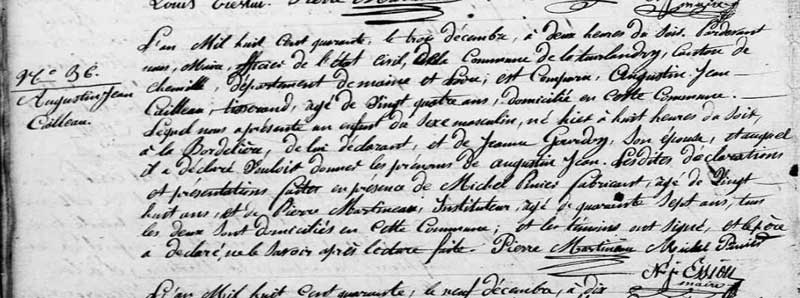 Louis Pierre
maire
N.º 36.
Augustin Jean
Cailleau.
L'an Mil huit Cent quarante, le trois décembre, à deux heures du Soir. Pardevant
nous, Maire, officier de l'état civil, de la Commune de la tourlandry, Canton de
chemillé, département de maine et Loire; est Comparu, Augustin Jean
Cailleau, tisserand, agé de Vingt quatre ans, domicilié en Cette Commune.
Lequel nous a présenté un enfant du Sexe masculin, né hier à huit heures du Soir,
à la Bordelière, de lui déclarant, et de Jeanne Gavidry, Son épouse, et auquel
il a déclaré Vouloir donner les prénoms de augustin Jean. Lesdites déclarations
et présentations faites en présence de Michel Fabricant, agé de Vingt
huit ans, et de Pierre Martineau, Instituteur, agé de quarante Sept ans, tous
les deux Sont domiciliés en Cette Commune; et les témoins ont Signé, et le père
a déclaré, ne le Savoir après lecture faite. Pierre Martineau Michel
maire
L'an Mil huit Cent quarante, le neuf décembre, à dix